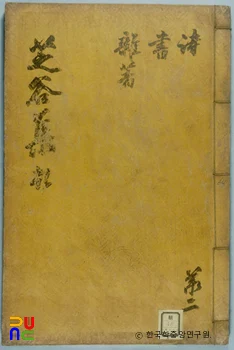 詩
書
雜著
芝谷
第二
PUNS
© 한국학중앙연구원